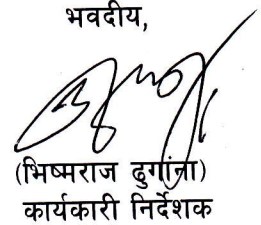 भवदीय,
(भिष्मराज ढुगांना)
कार्यकारी निर्देशक